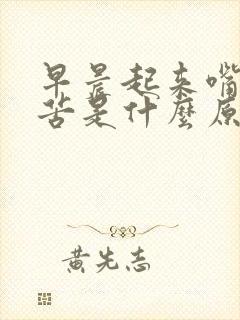 早晨起来嘴
苦是什麼原
黄先志